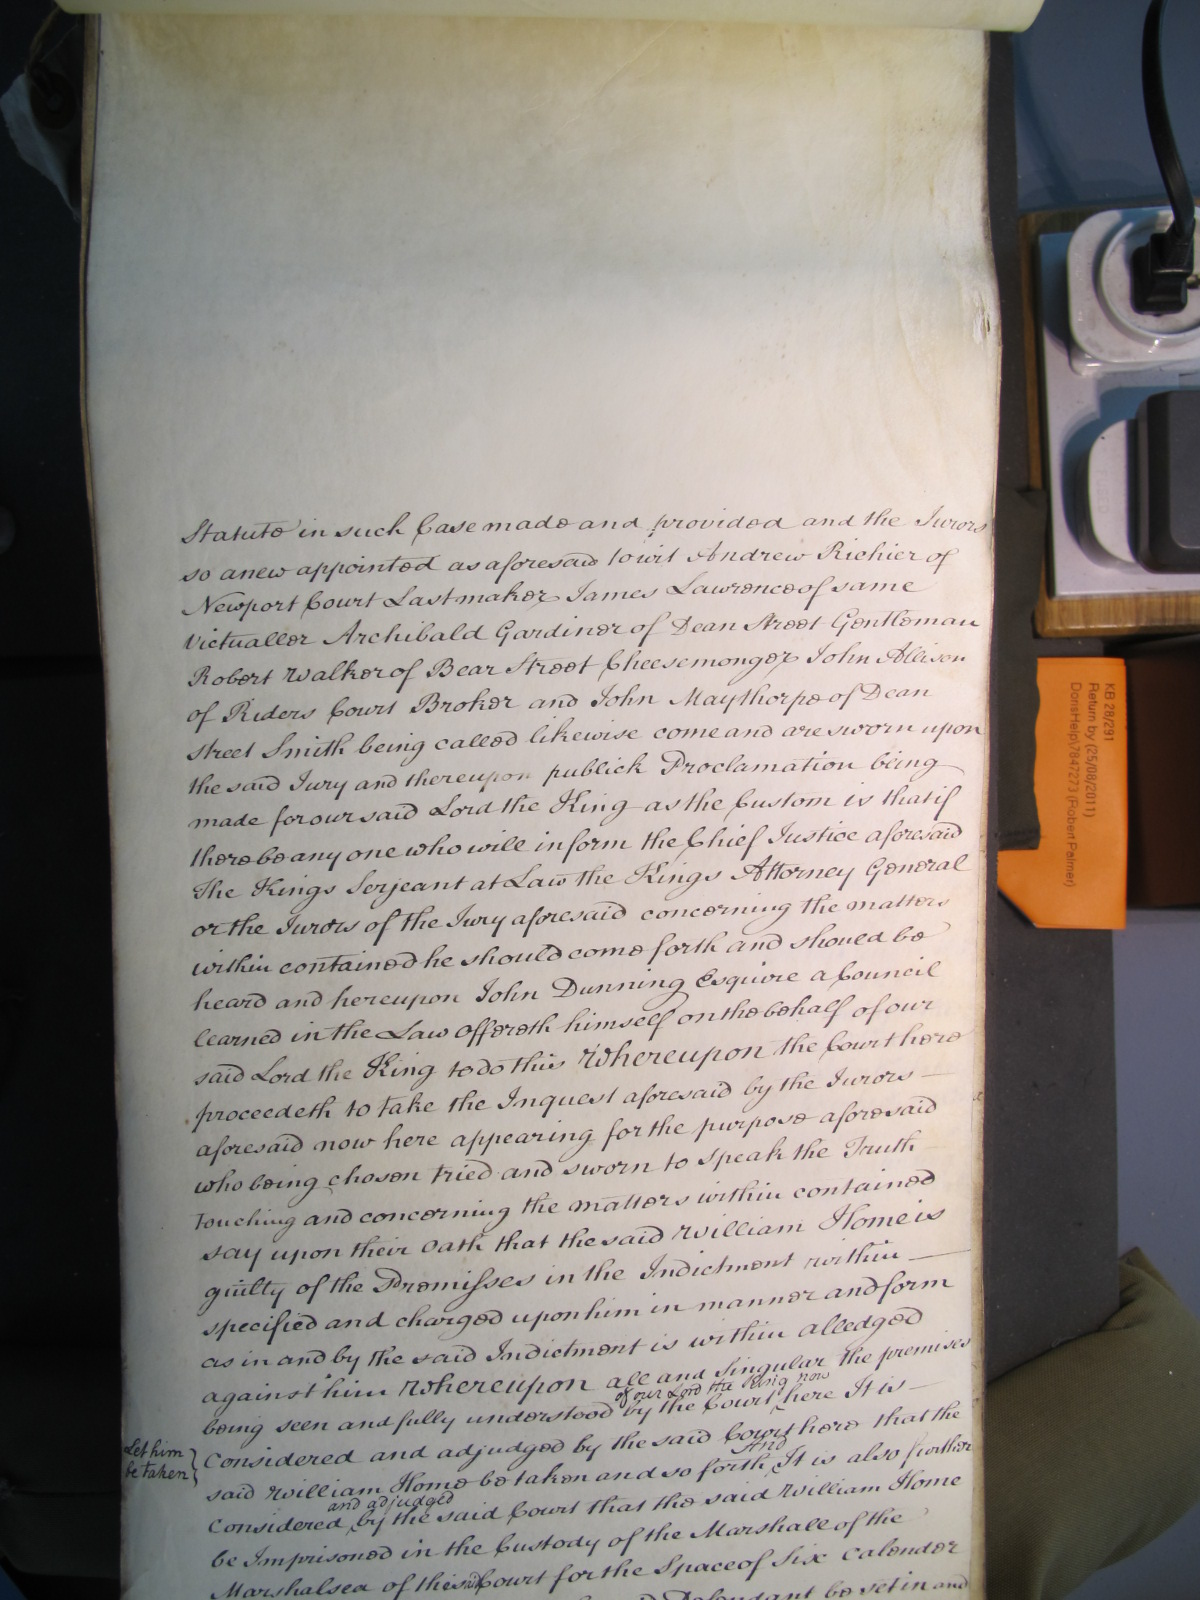 Statute in such Case made and provided and the Jurors
so anew appointed as aforesaid to wit Andrew Richier of
Newport Court Lastmaker James Lawrence of same
Victualler Archibald Gardiner of Dean Street Gentleman
Robert Walker of Bear Street Cheesemonger John Allison
of Riders Court Broker and John Maythorpe of Dean
Street Smith being called likewise come and are sworn upon
the said Jury and thereupon publick Proclamation being
made for our said Lord the King as the Custom is that if
there be any one who will inform the Chief Justice aforesaid
The Kings Serjeant at Law the Kings Attorney General
or the Jurors of the Jury aforesaid concerning the matters
within contained he should come forth and should be
heard and hereupon John Dunning Esquire a Council
learned in the Law offereth himself on the behalf of our
said Lord the King to do this Whereupon the Court here
proceedeth to take the Inquest aforesaid by the Jurors
aforesaid now here appearing for the purpose aforesaid
who being chosen tried and sworn to speak the Truth
touching and concerning the matters within contained
say upon their Oath that the said William Home is
guilty of the Premisses in the Indictment within
specified and charged upon him in manner and form
as in and by the said Indictment is within alledged
against him Whereupon all and Singular the premises
of our Lord the King now
being seen and fully understood by the Court here It is
Let him
be taken
Considered and adjudged by the said Court here that the
And
said William Home be taken and so forth It is also further
and adjudged
Considered by the said Court that the said William Home
be Imprisoned in the Custody of the Marshall of the
Marshalsea of the said Court for the Space of Six Calender
Defendant be set in and
KB 28/291
Return by (25/08/2011)
DorisHelp\7847273 (Robert Palmer)